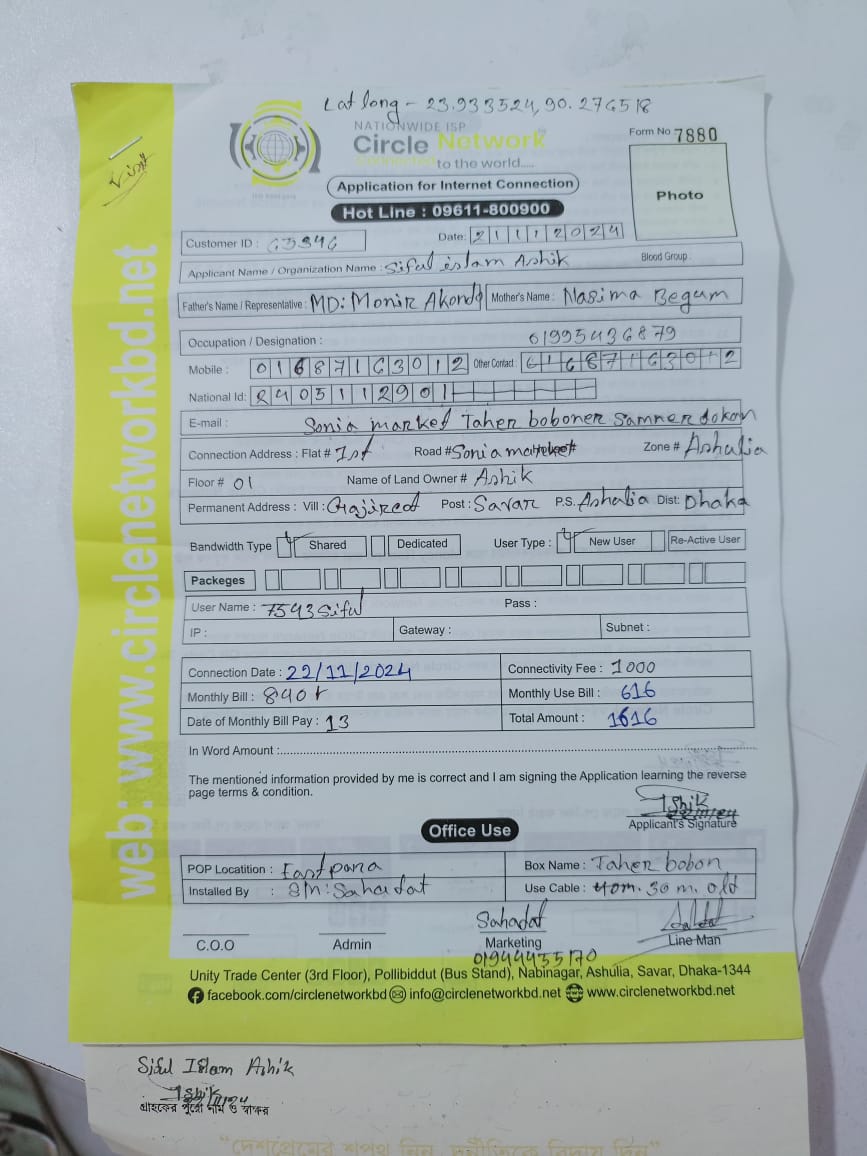 Lat long - 23.933524, 90.276518
NATIONWIDE ISP
Circle Network
Connected to the world.....
Form No 7880
Photo
Application for Internet Connection
Hot Line : 09611-800900
Customer ID : G3846
Date: 21112024
Applicant Name / Organization Name : Siful islam Ashik Blood Group :
Father's Name / Representative : MD: Monir Akond Mother's Name : Nasima Begum
Occupation / Designation : 01995436879
Mobile : 01687163012 Other Contact : 01687163012
National Id: 2405112901
E-mail : Sonia market Taher boboner Samner dokan
Connection Address : Flat # 1st Road # Sonia market Zone # Ashulia
Floor # 01 Name of Land Owner # Ashik
Permanent Address : Vill : Post : Savar P.S. Ashulia Dist: Dhaka
Bandwidth Type Shared Dedicated User Type : New User Re-Active User
Packeges
User Name : 7543siful Pass :
IP : Gateway : Subnet :
Connection Date : 22/11/2024 Connectivity Fee : 1000
Monthly Bill : 840 Monthly Use Bill : 616
Date of Monthly Bill Pay : 13 Total Amount : 1616
In Word Amount :
The mentioned information provided by me is correct and I am signing the Application learning the reverse
page terms & condition.
Ashik
Applicant's Signature
Office Use
POP Locatition : East para Box Name : Taher bobon
Installed By : Sahadat Use Cable : 40m. 30 m. old
Sahadat
C.O.O Admin Marketing Line Man
01944435170
Unity Trade Center (3rd Floor), Pollibiddut (Bus Stand), Nabinagar, Ashulia, Savar, Dhaka-1344
facebook.com/circlenetworkbd info@circlenetworkbd.net www.circlenetworkbd.net
web: www.circlenetworkbd.net
Visit
Siful Islam Ashik
Ashik
গ্রাহকের পুরো নাম ও স্বাক্ষর
"দেশপ্রেমের শপথ নিন, দুর্নীতিকে বিদায় দিন"